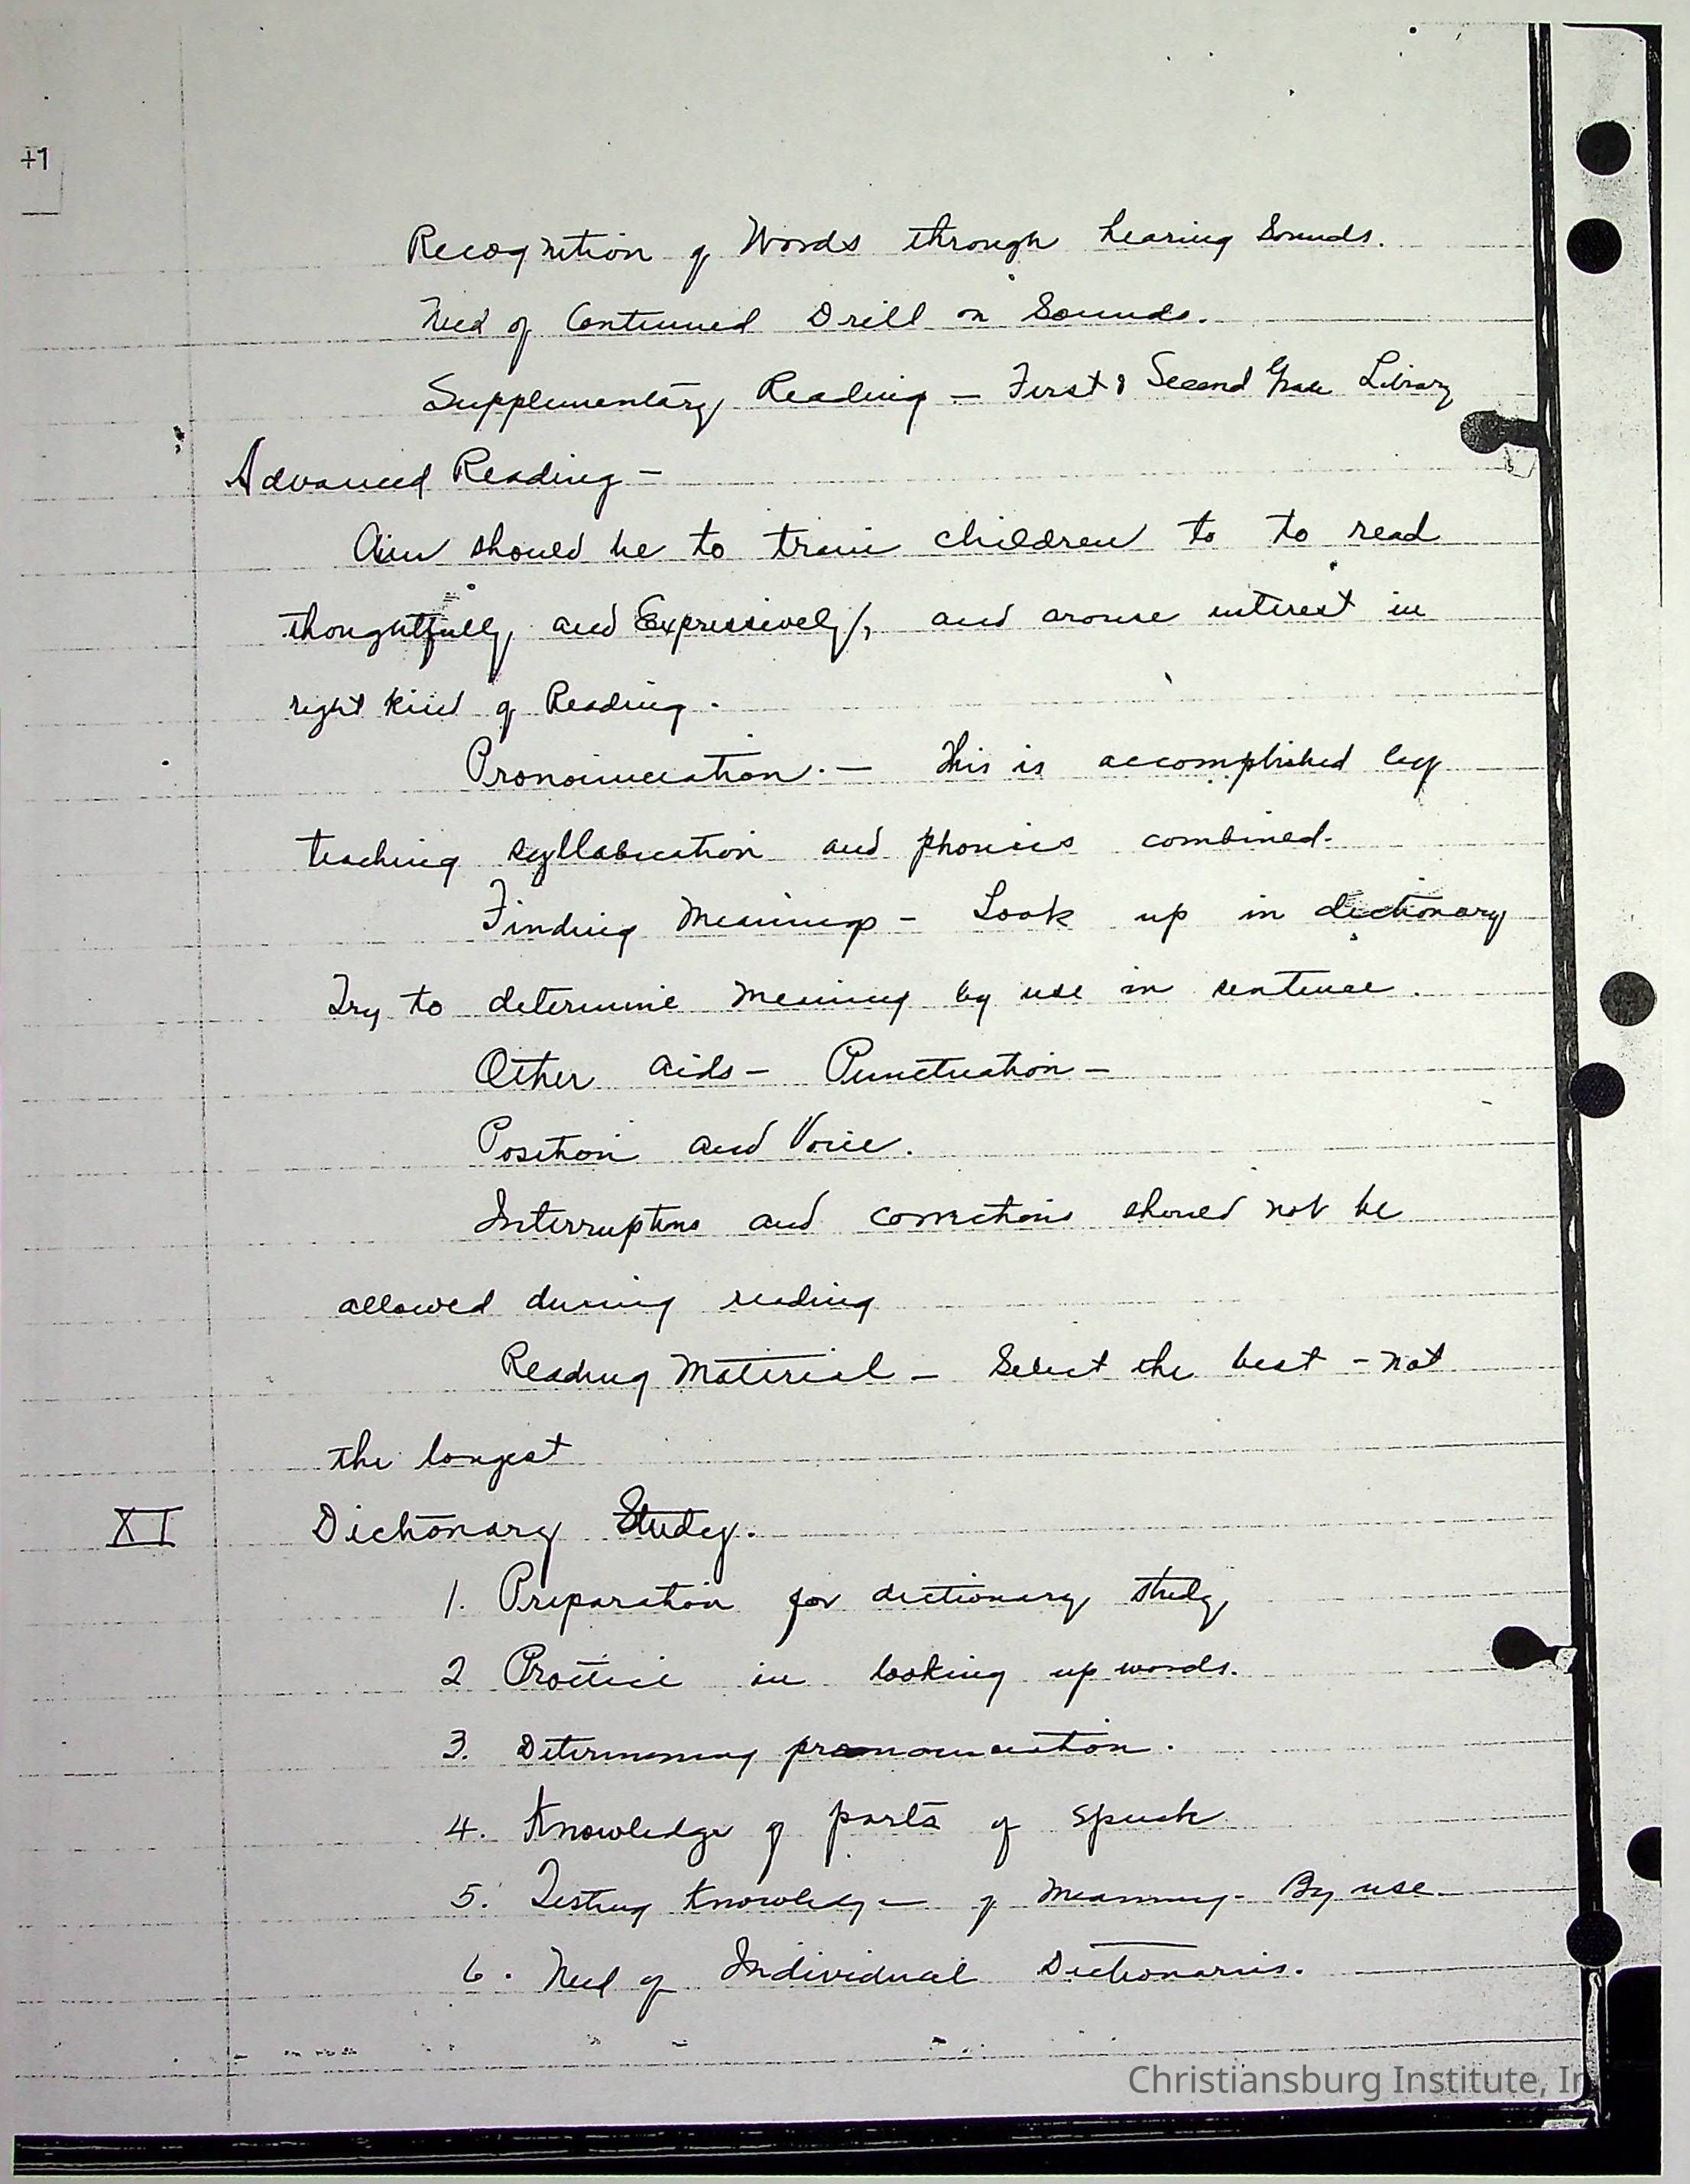 +1
Recognition of Words through hearing Sounds.
Need of Continued Drill on Sounds.
Supplementary Reading — First & Second Grade Library
Advanced Reading —
Aim should be to train children to to read
thoughtfully and Expressively, and arouse interest in
right kind of Reading.
Pronounciation. — This is accomplished by
teaching syllabication and phonics combined.
Finding Meanings — Look up in dictionary
Try to determine meaning by use in sentence.
Other aids — Punctuation —
Position and Voice.
Interruptions and corrections should not be
allowed during reading
Reading Material — Select the best — not
the longest
XI Dictionary Study.
1. Preparation for dictionary study
2 Practice in looking up words.
3. Determining pronounciation.
4. Knowledge of parts of speech
5. Testing Knowledge of Meaning - By use.
6. Need of Individual Dictionaries.
Christiansburg Institute, In